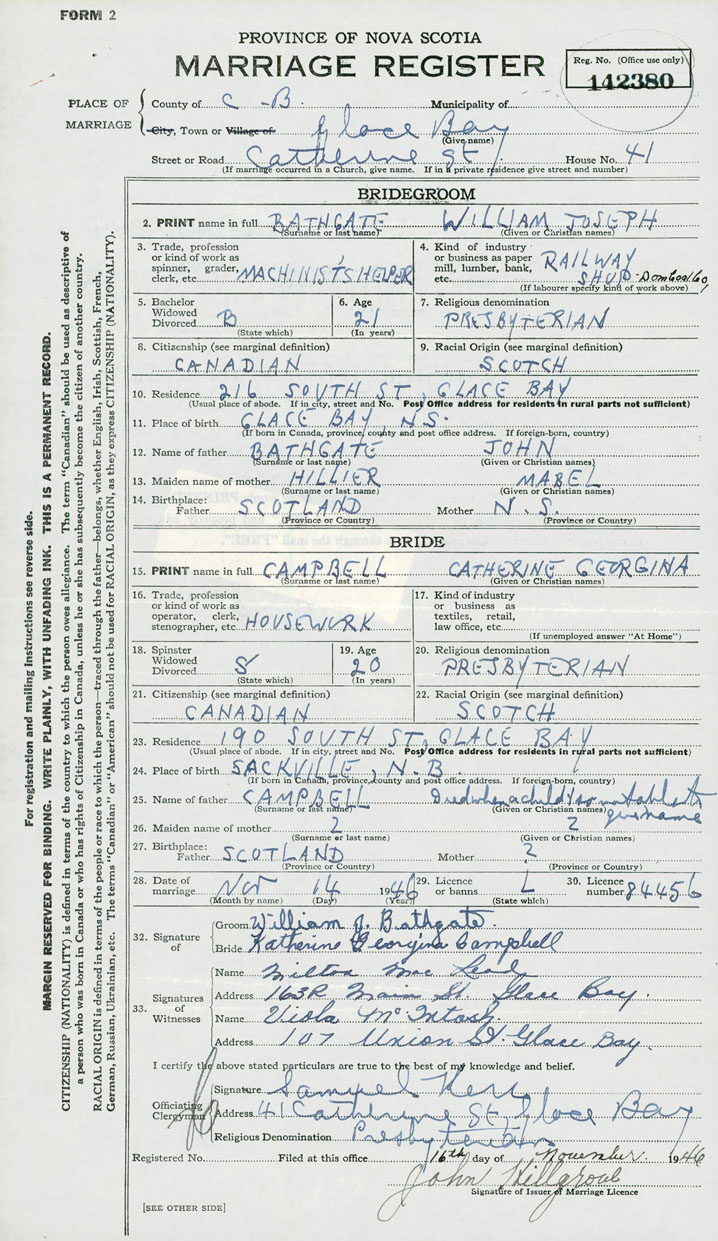 FORM 2
PROVINCE OF NOVA SCOTIA
MARRIAGE REGISTER
Reg. No. (Office use only)
142380
PLACE OF MARRIAGE
County of C-B. Municipality of
City, Town or Village of Glace Bay
(Give name)
Street or Road Catherine St, House No. 41
(If marriage occurred in a Church, give name. If in a private residence give street and number)
BRIDEGROOM
2. PRINT name in full BATHGATE WILLIAM JOSEPH
(Surname or last name) (Given or Christian names)
3. Trade, profession or kind of work as spinner, grader, clerk, etc. MACHINIST'S HELPER
4. Kind of industry or business as paper mill, lumber, bank, etc. RAILWAY SHOP - Dom Coal Co,
(If labourer specify kind of work above)
5. Bachelor Widowed Divorced B
(State which)
6. Age 21
(In years)
7. Religious denomination
PRESBYTERIAN
8. Citizenship (see marginal definition)
CANADIAN
9. Racial Origin (see marginal definition)
SCOTCH
10. Residence 216 SOUTH ST, GLACE BAY
(Usual place of abode. If in city, street and No. Post Office address for residents in rural parts not sufficient)
11. Place of birth GLACE BAY, N.S.
(If born in Canada, province, county and post office address. If foreign-born, country)
12. Name of father BATHGATE JOHN
(Surname or last name) (Given or Christian names)
13. Maiden name of mother HILLIER MABEL
(Surname or last name) (Given or Christian names)
14. Birthplace: Father SCOTLAND Mother N.S.
(Province or Country) (Province or Country)
BRIDE
15. PRINT name in full CAMPBELL CATHERINE GEORGINA
(Surname or last name) (Given or Christian names)
16. Trade, profession or kind of work as operator, clerk, stenographer, etc. HOUSEWORK
17. Kind of industry or business as textiles, retail, law office, etc.
(If unemployed answer "At Home")
18. Spinster Widowed Divorced S
(State which)
19. Age 20
(In years)
20. Religious denomination
PRESBYTERIAN
21. Citizenship (see marginal definition)
CANADIAN
22. Racial Origin (see marginal definition)
SCOTCH
23. Residence 190 SOUTH ST, GLACE BAY
(Usual place of abode. If in city, street and No. Post Office address for residents in rural parts not sufficient)
24. Place of birth SACKVILLE, N.B.
(If born in Canada, province, county and post office address. If foreign-born, country)
25. Name of father CAMPBELL Died when a child & so not able to give name
(Surname or last name) (Given or Christian names)
26. Maiden name of mother ? ?
(Surname or last name) (Given or Christian names)
27. Birthplace: Father SCOTLAND Mother ?
(Province or Country) (Province or Country)
28. Date of marriage Nov 14 1946
(Month by name) (Day) (Year)
29. Licence or banns L
(State which)
30. Licence number 84456
32. Signature of
Groom William J. Bathgate.
Bride Katherine Georgina Campbell
33. Signatures of Witnesses
Name Milton Mac Leod
Address 163R Main St. Glace Bay.
Name Viola McIntosh.
Address 107 Union St. Glace Bay.
I certify the above stated particulars are true to the best of my knowledge and belief.
Officiating Clergyman
Signature Samuel Kerr
Address 41 Catherine St Glace Bay
Religious Denomination Presbyterian
Registered No. Filed at this office 16th day of November 1946
John Hillgrove
Signature of Issuer of Marriage Licence
[SEE OTHER SIDE]
For registration and mailing instructions see reverse side.
MARGIN RESERVED FOR BINDING. WRITE PLAINLY, WITH UNFADING INK. THIS IS A PERMANENT RECORD.
CITIZENSHIP (NATIONALITY) is defined in terms of the country to which the person owes allegiance. The term "Canadian" should be used as descriptive of
a person who was born in Canada or who has rights of Citizenship in Canada, unless he or she has subsequently become the citizen of another country.
RACIAL ORIGIN is defined in terms of the people or race to which the person—traced through the father—belongs, whether English, Irish, Scottish, French,
German, Russian, Ukrainian, etc. The terms "Canadian" or "American" should not be used for RACIAL ORIGIN, as they express CITIZENSHIP (NATIONALITY).